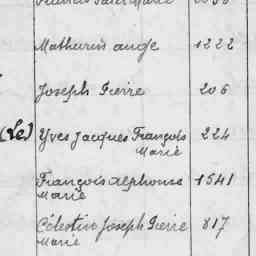 Mathurin ange 1222
Joseph Pierre 206
(Le) Yves Jacques François 224
Marie
François Alphonse 1541
Marie
Célestin Joseph Pierre 817
Marie